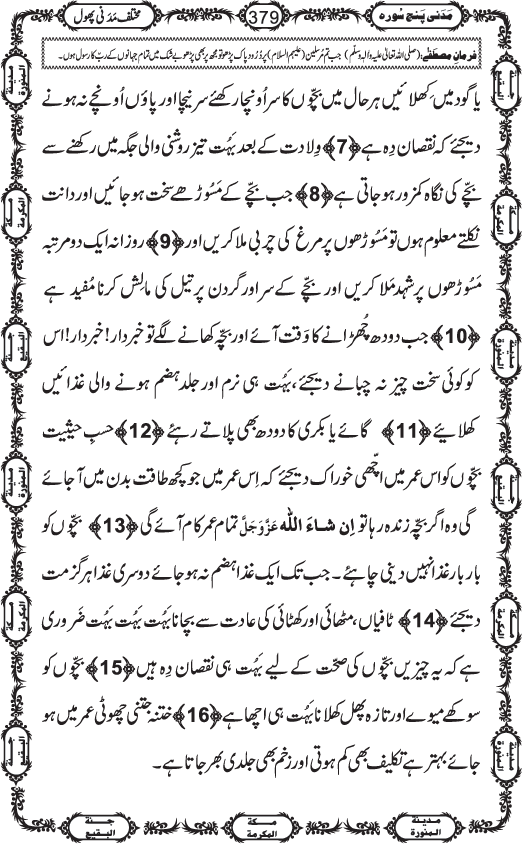 مَدَنی پَنج سُورہ
379
مختلف مَدَنی پھول
فرمانِ مصطَفٰے: (صلی اللہ تعالیٰ علیہ والہ وسلم) جب تم مُرسلین (علیہم السلام) پر دُرُود پاک پڑھو تو مجھ پر بھی پڑھو بے شک میں تمام جہانوں کے رب کا رسول ہوں۔
یا گود میں کِھلائیں ہر حال میں بچّوں کا سر اُونچا رکھئے سر نیچا اور پاؤں اُونچے نہ ہونے
دیجئے کہ نقصان دِہ ہے ﴿7﴾ وِلادت کے بعد بہُت تیز روشنی والی جگہ میں رکھنے سے
بچّے کی نگاہ کمزور ہو جاتی ہے ﴿8﴾ جب بچّے کے مَسُوڑھے سخت ہو جائیں اور دانت
نکلتے معلوم ہوں تو مَسُوڑھوں پر مرغ کی چربی ملا کریں اور ﴿9﴾ روزانہ ایک دو مرتبہ
مَسُوڑھوں پر شہد مَلا کریں اور بچّے کے سر اور گردن پر تیل کی مالِش کرنا مُفید ہے
﴿10﴾ جب دودھ چُھڑانے کا وَقت آئے اور بچّہ کھانے لگے تو خبردار! خبردار! اس
کو کوئی سخت چیز نہ چبانے دیجئے، بہُت ہی نرم اور جلد ہضم ہونے والی غذائیں
کھلایئے ﴿11﴾ گائے یا بکری کا دودھ بھی پلاتے رہئے ﴿12﴾ حسبِ حیثیت
بچّوں کو اس عمر میں اچّھی خوراک دیجئے کہ اِس عمر میں جو کچھ طاقت بدن میں آجائے
گی وہ اگر بچّہ زندہ رہا تو اِن شاءَ اللّٰہ عَزَّوَجَلَّ تمام عمر کام آئے گی ﴿13﴾ بچّوں کو
بار بار غذا نہیں دینی چاہئے۔ جب تک ایک غذا ہضم نہ ہو جائے دوسری غذا ہرگز مت
دیجئے ﴿14﴾ ٹافیاں، مٹھائی اور کھٹائی کی عادت سے بچانا بہُت بہُت بہُت ضَروری
ہے کہ یہ چیزیں بچّوں کی صحّت کے لیے بہُت ہی نقصان دِہ ہیں ﴿15﴾ بچّوں کو
سوکھے میوے اور تازہ پھل کھلانا بہُت ہی اچھا ہے ﴿16﴾ ختنہ جتنی چھوٹی عمر میں ہو
جائے بہتر ہے تکلیف بھی کم ہوتی اور زخم بھی جلدی بھر جاتا ہے۔
مدینۃ المنورۃ
مکۃ المکرمۃ
جنۃ البقیع